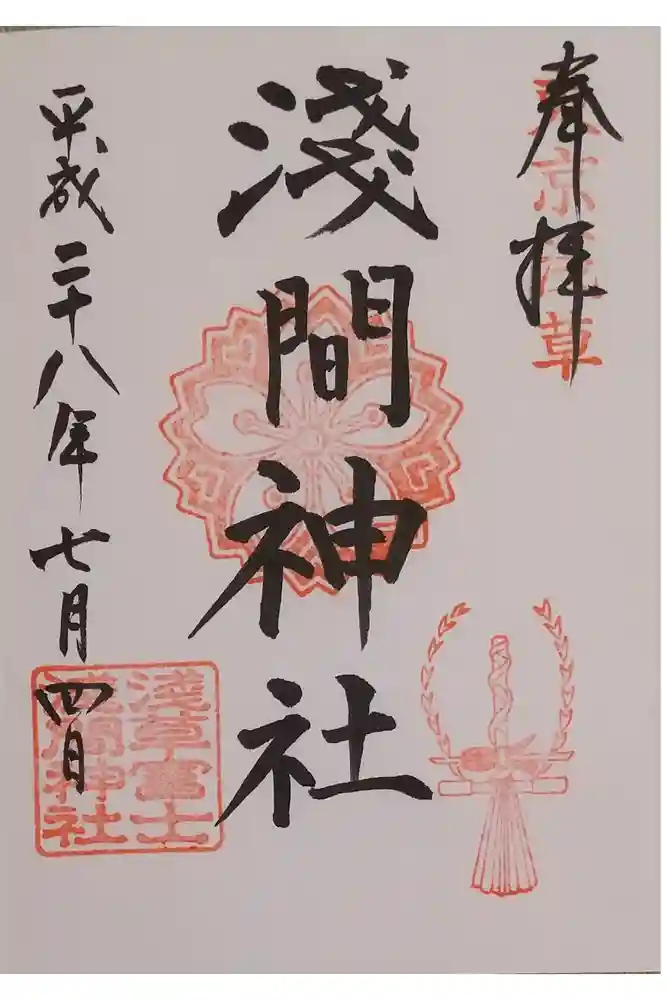 奉拝
東京浅草
淺間神社
平成二十八年七月四日
淺草富士
浅間神社